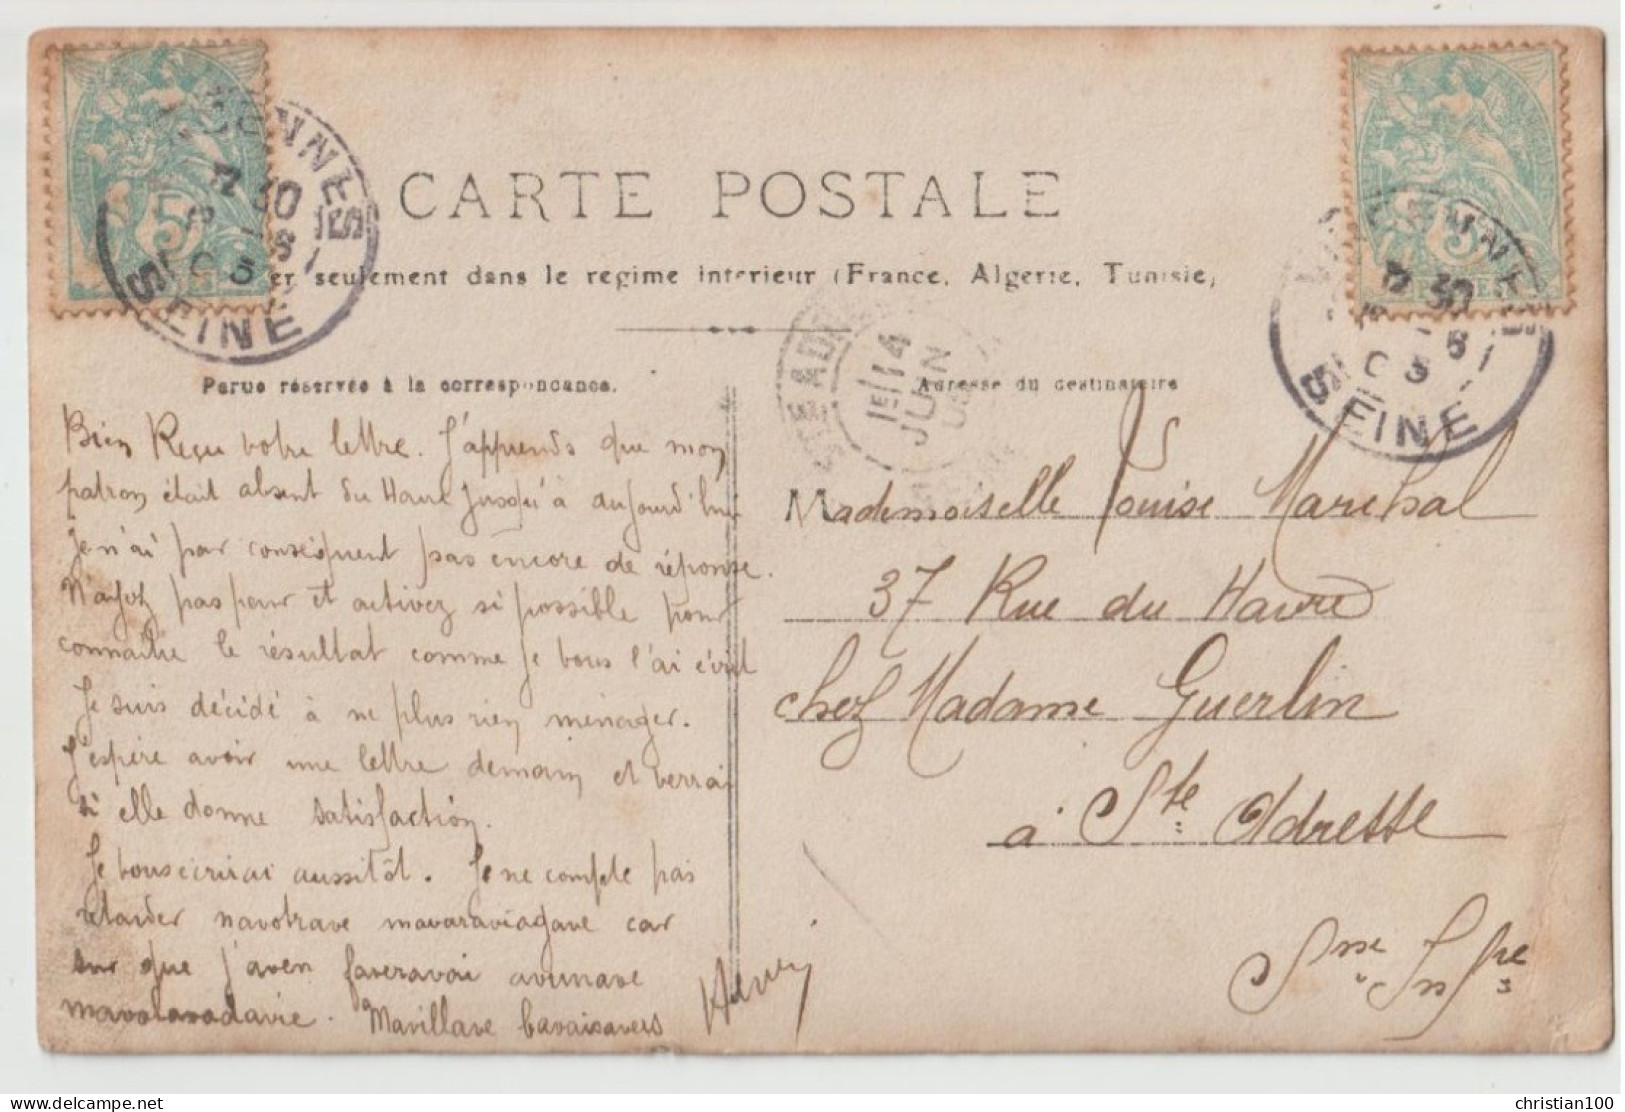 CARTE POSTALE
er seulement dans le regime interieur (France, Algerie, Tunisie)
Partie réservée à la correspondance.
Adresse du destinataire
VINCENNES
SEINE
5
VINCENNES
SEINE
5
14
JUIN
05
Bien Reçu votre lettre. J'apprends que mon
patron était absent du Havre jusqu'à aujourd'hui
Je n'ai par conséquent pas encore de réponse.
N'ayez pas peur et activez si possible pour
connaître le résultat comme je vous l'ai écrit
Je suis décidé à ne plus rien ménager.
J'espère avoir une lettre demain et verrai
si elle donne satisfaction.
Je vous écrirai aussitôt. Je ne compte pas
retarder navotrave mavaraviagave car
que j'aven faveravai avunave
mavalavadavie. Mavillave bavaisavers
Henri
Mademoiselle Louise Marchal
37 Rue du Havre
chez Madame Guerlin
à Ste Adresse
Sne Infre
christian100